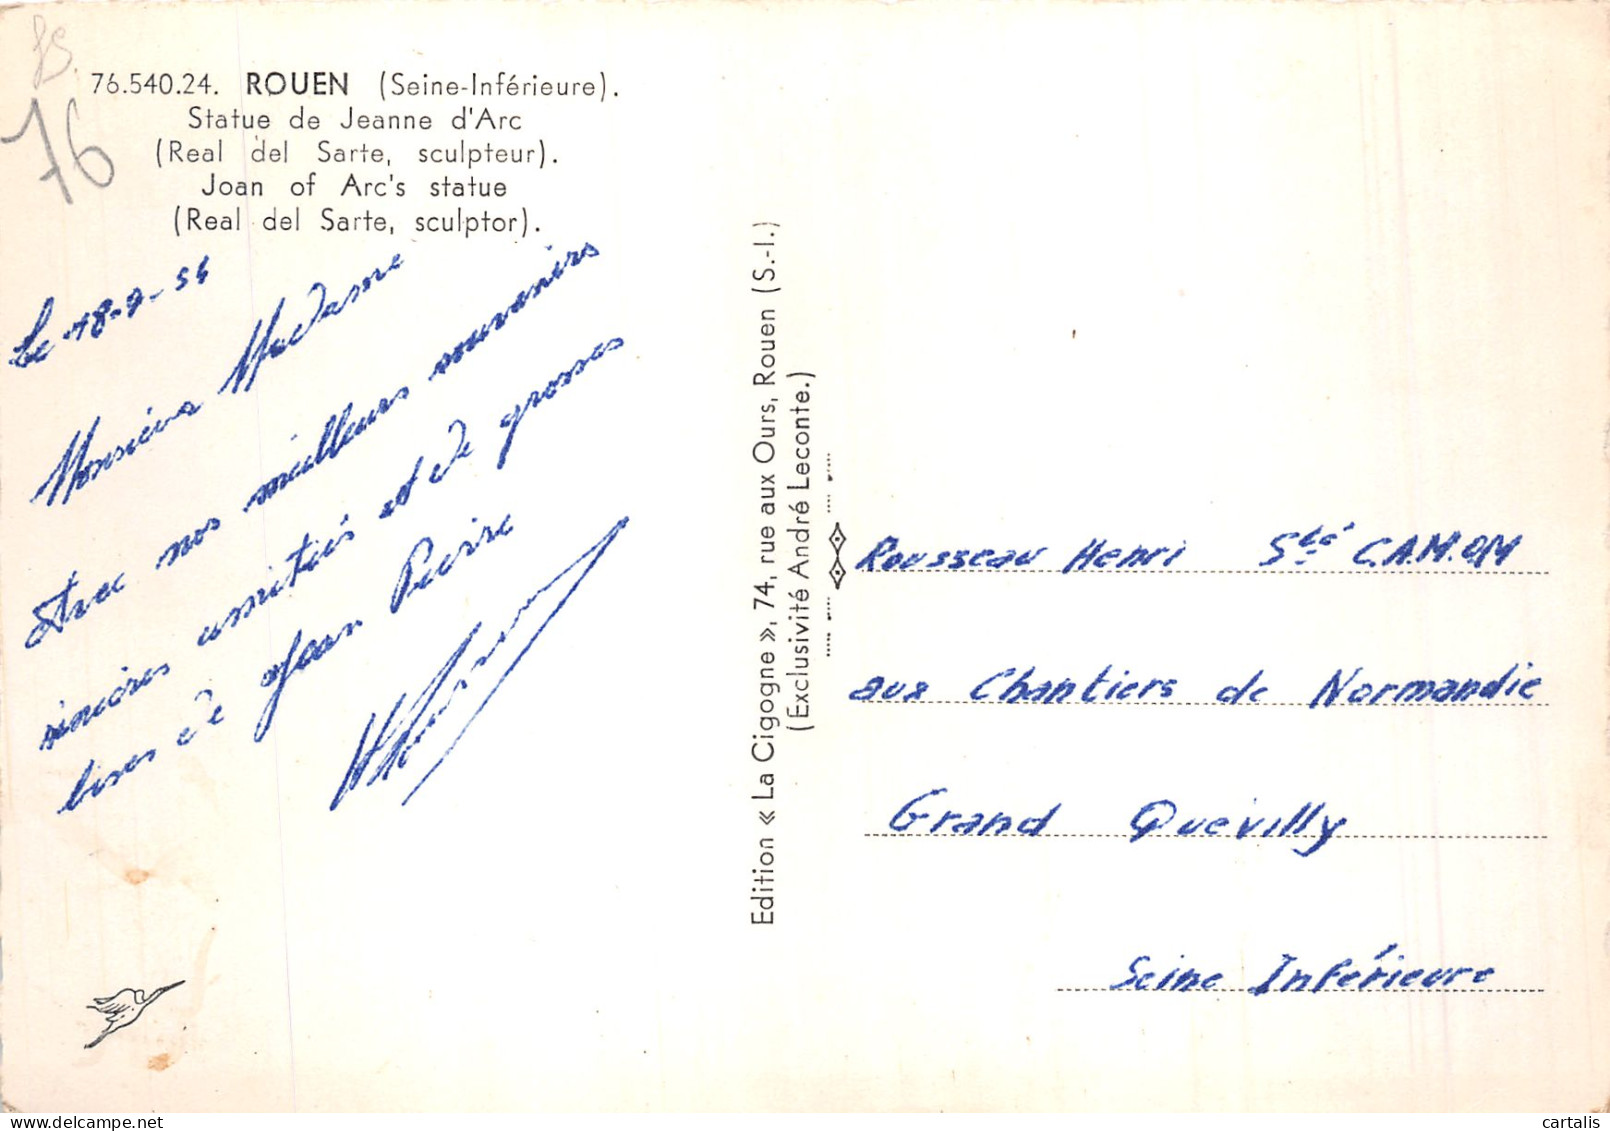 76
76.540.24. ROUEN (Seine-Inférieure).
Statue de Jeanne d'Arc
(Real del Sarte, sculpteur).
Joan of Arc's statue
(Real del Sarte, sculptor).
Le 18-9-54
Monsieur Madame
Avec nos meilleurs souvenirs
sincères amitiés et de grosses
bises de Jean Pierre
Edition « La Cigogne », 74, rue aux Ours, Rouen (S.-I.)
(Exclusivité André Leconte.)
Rousseau Henri Sté C.A.M.OM
aux Chantiers de Normandie
Grand Quevilly
Seine Inférieure
cartalis